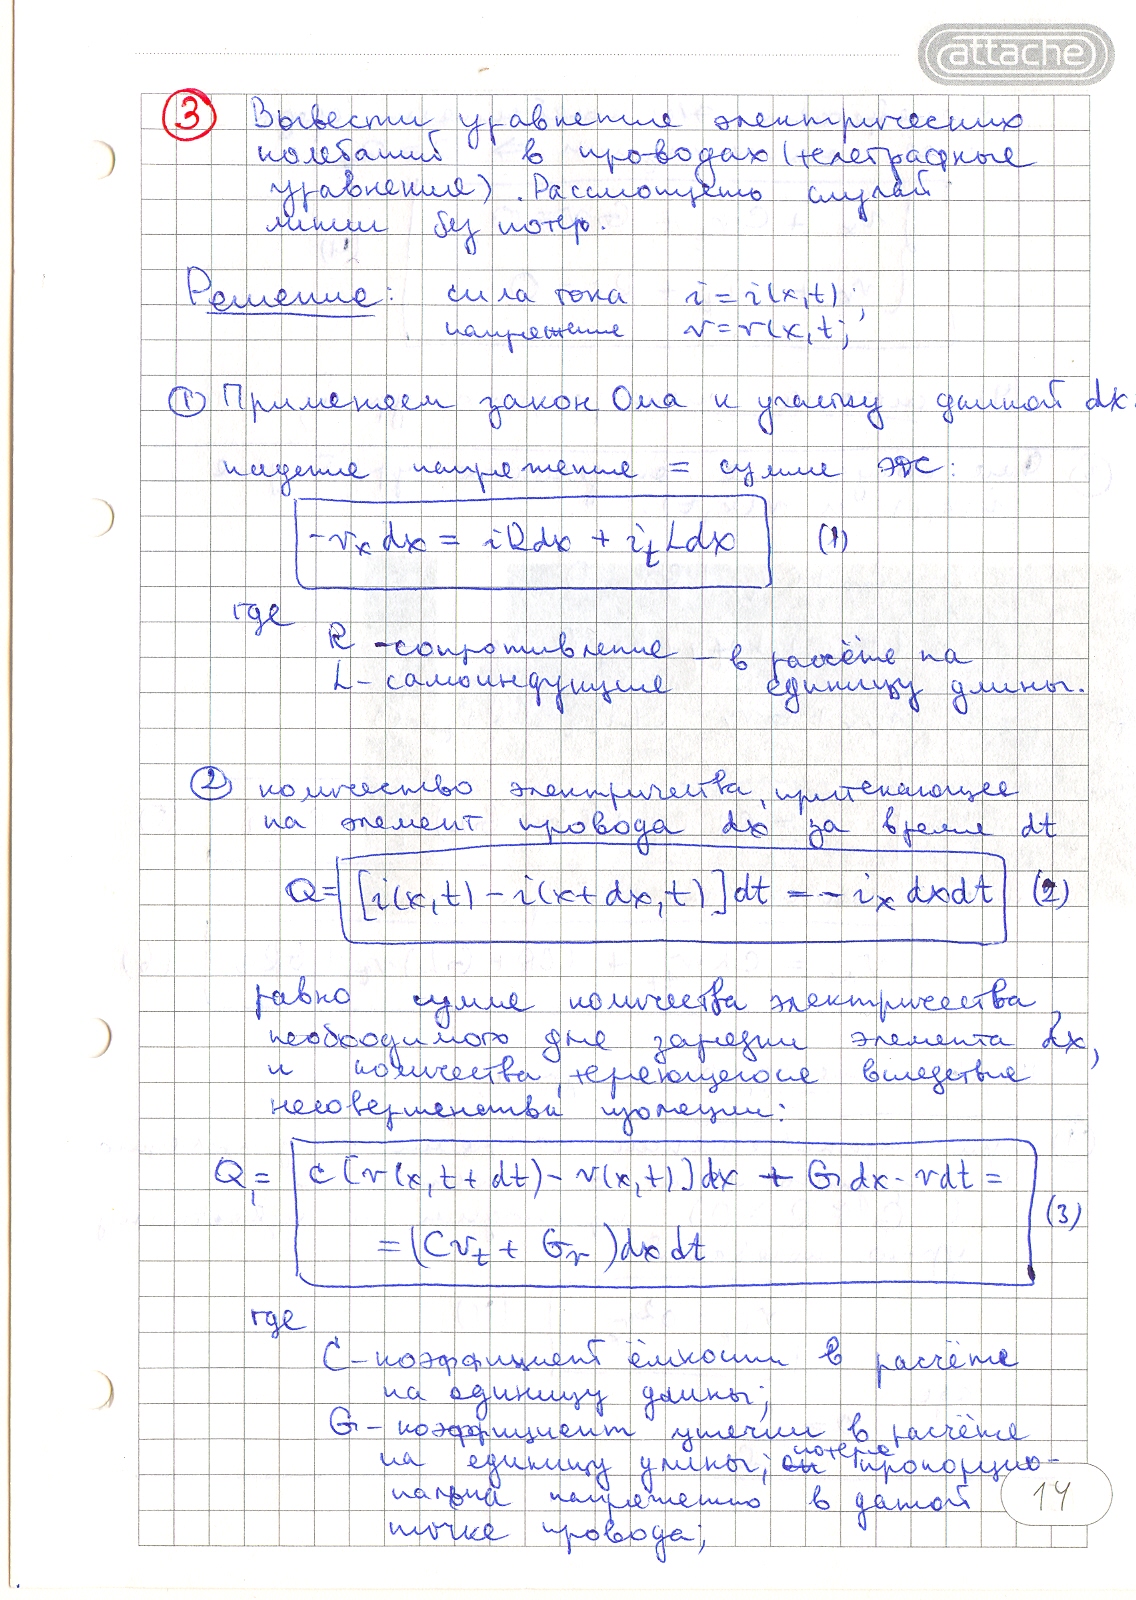 attache
3 Вывести уравнение электрических
колебаний в проводах (телеграфные
уравнение). Рассмотреть случай
линии без потерь.
Решение: сила тока i = i(x,t);
напряжение v = v(x,t;
1 Применяем закон Ома к участку длиной dx.
падение напряжение = сумме ЭДС:
-vₓ dx = iRdx + iₜ Ldx (1)
где
R - сопротивление - в расчёте на
L - самоиндукцие единицу длины.
2 количество электричества, притекающее
на элемент провода dx за время dt
Q = [i(x,t) - i(x+dx,t)]dt = - iₓ dxdt (2)
равно сумме количества электричества,
необходимого для зарядки элемента dx,
и количества, теряющегося вследствие
несовершенства изоляции:
Q₁ = C[v(x,t+dt) - v(x,t)]dx + G dx · vdt =
= (Cvₜ + Gv)dxdt (3)
где
C - коэффициент ёмкости в расчёте
на единицу длины;
G - коэффициент утечки в расчёте
на единицу длины; потери пропорцио-
нальны напряжению в данной
точке провода;
14